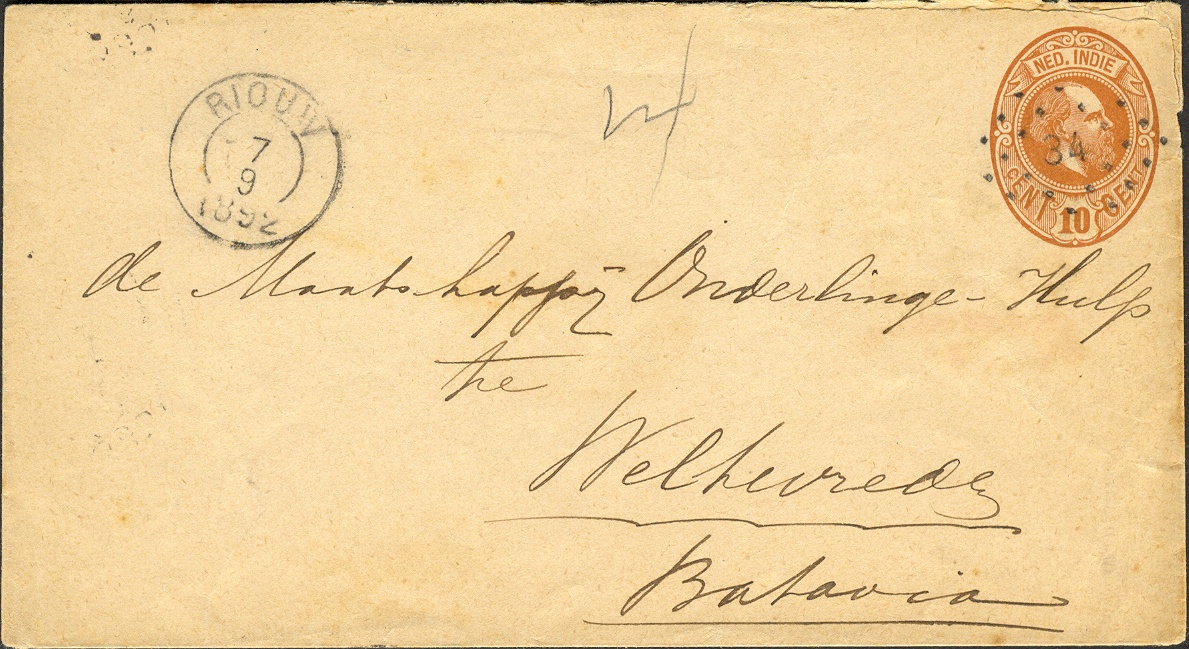 RIOUW
7
9
1892
NED. INDIE
34
CENT 10 CENT
de Maatschappij Onderlinge-Hulp
te
Weltevreden
Batavia